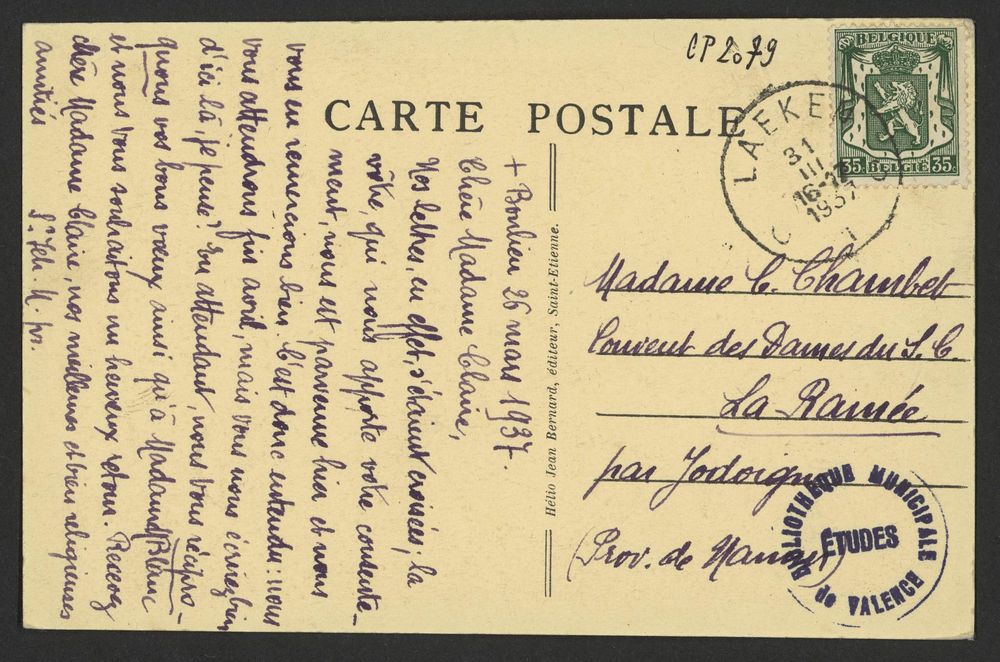 CP 2079
CARTE POSTALE
BELGIQUE
35 BELGIE 35
LAEKEN
31
III
16-17
1937
+ Bonlieu 26 mars 1937.
Chère Madame Claire,
Nos lettres, en effet, s'étaient croisées ; la
vôtre, qui nous apporte votre consente-
ment, nous est parvenue hier et nous
vous en remercions bien. C'est donc entendu : nous
vous attendrons fin avril, mais vous nous écrirez bien
d'ici là, je pense ? En attendant, nous vous récipro-
quons vos bons vœux ainsi qu'à Madame Blanc
et nous vous souhaitons un heureux retour. Recevez
chère Madame Claire, nos meilleures et bien religieuses
amitiés
Hélio Jean Bernard, éditeur, Saint-Etienne.
Madame C. Chambet
Couvent des Dames du S. C.
La Ramée
par Jodoigne
(Prov. de Namur)
BIBLIOTHEQUE MUNICIPALE
ÉTUDES
de VALENCE